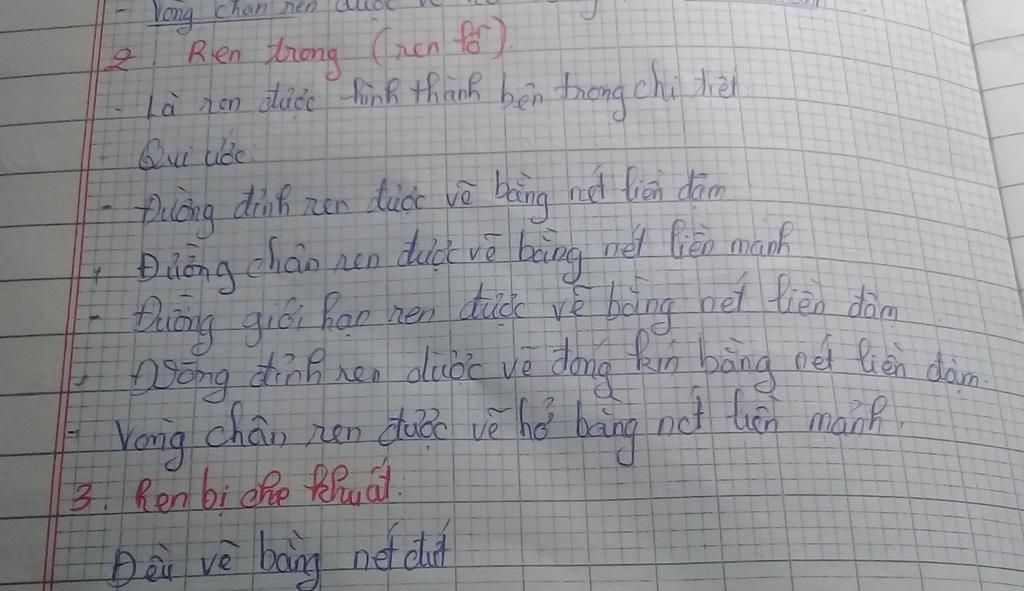 - Vòng chân ren được vẽ
2 Ren trong (ren lỗ)
- Là ren được hình thành bên trong chi tiết
Qui ước.
- Đường đỉnh ren được vẽ bằng nét liền đậm
- Đường chân ren được vẽ bằng nét liền mảnh
- Đường giới hạn ren được vẽ bằng nét liền đậm
- Vòng đỉnh ren được vẽ đóng kín bằng nét liền đậm.
- Vòng chân ren được vẽ hở bằng nét liền mảnh.
3. Ren bị che khuất.
Đều vẽ bằng nét đứt